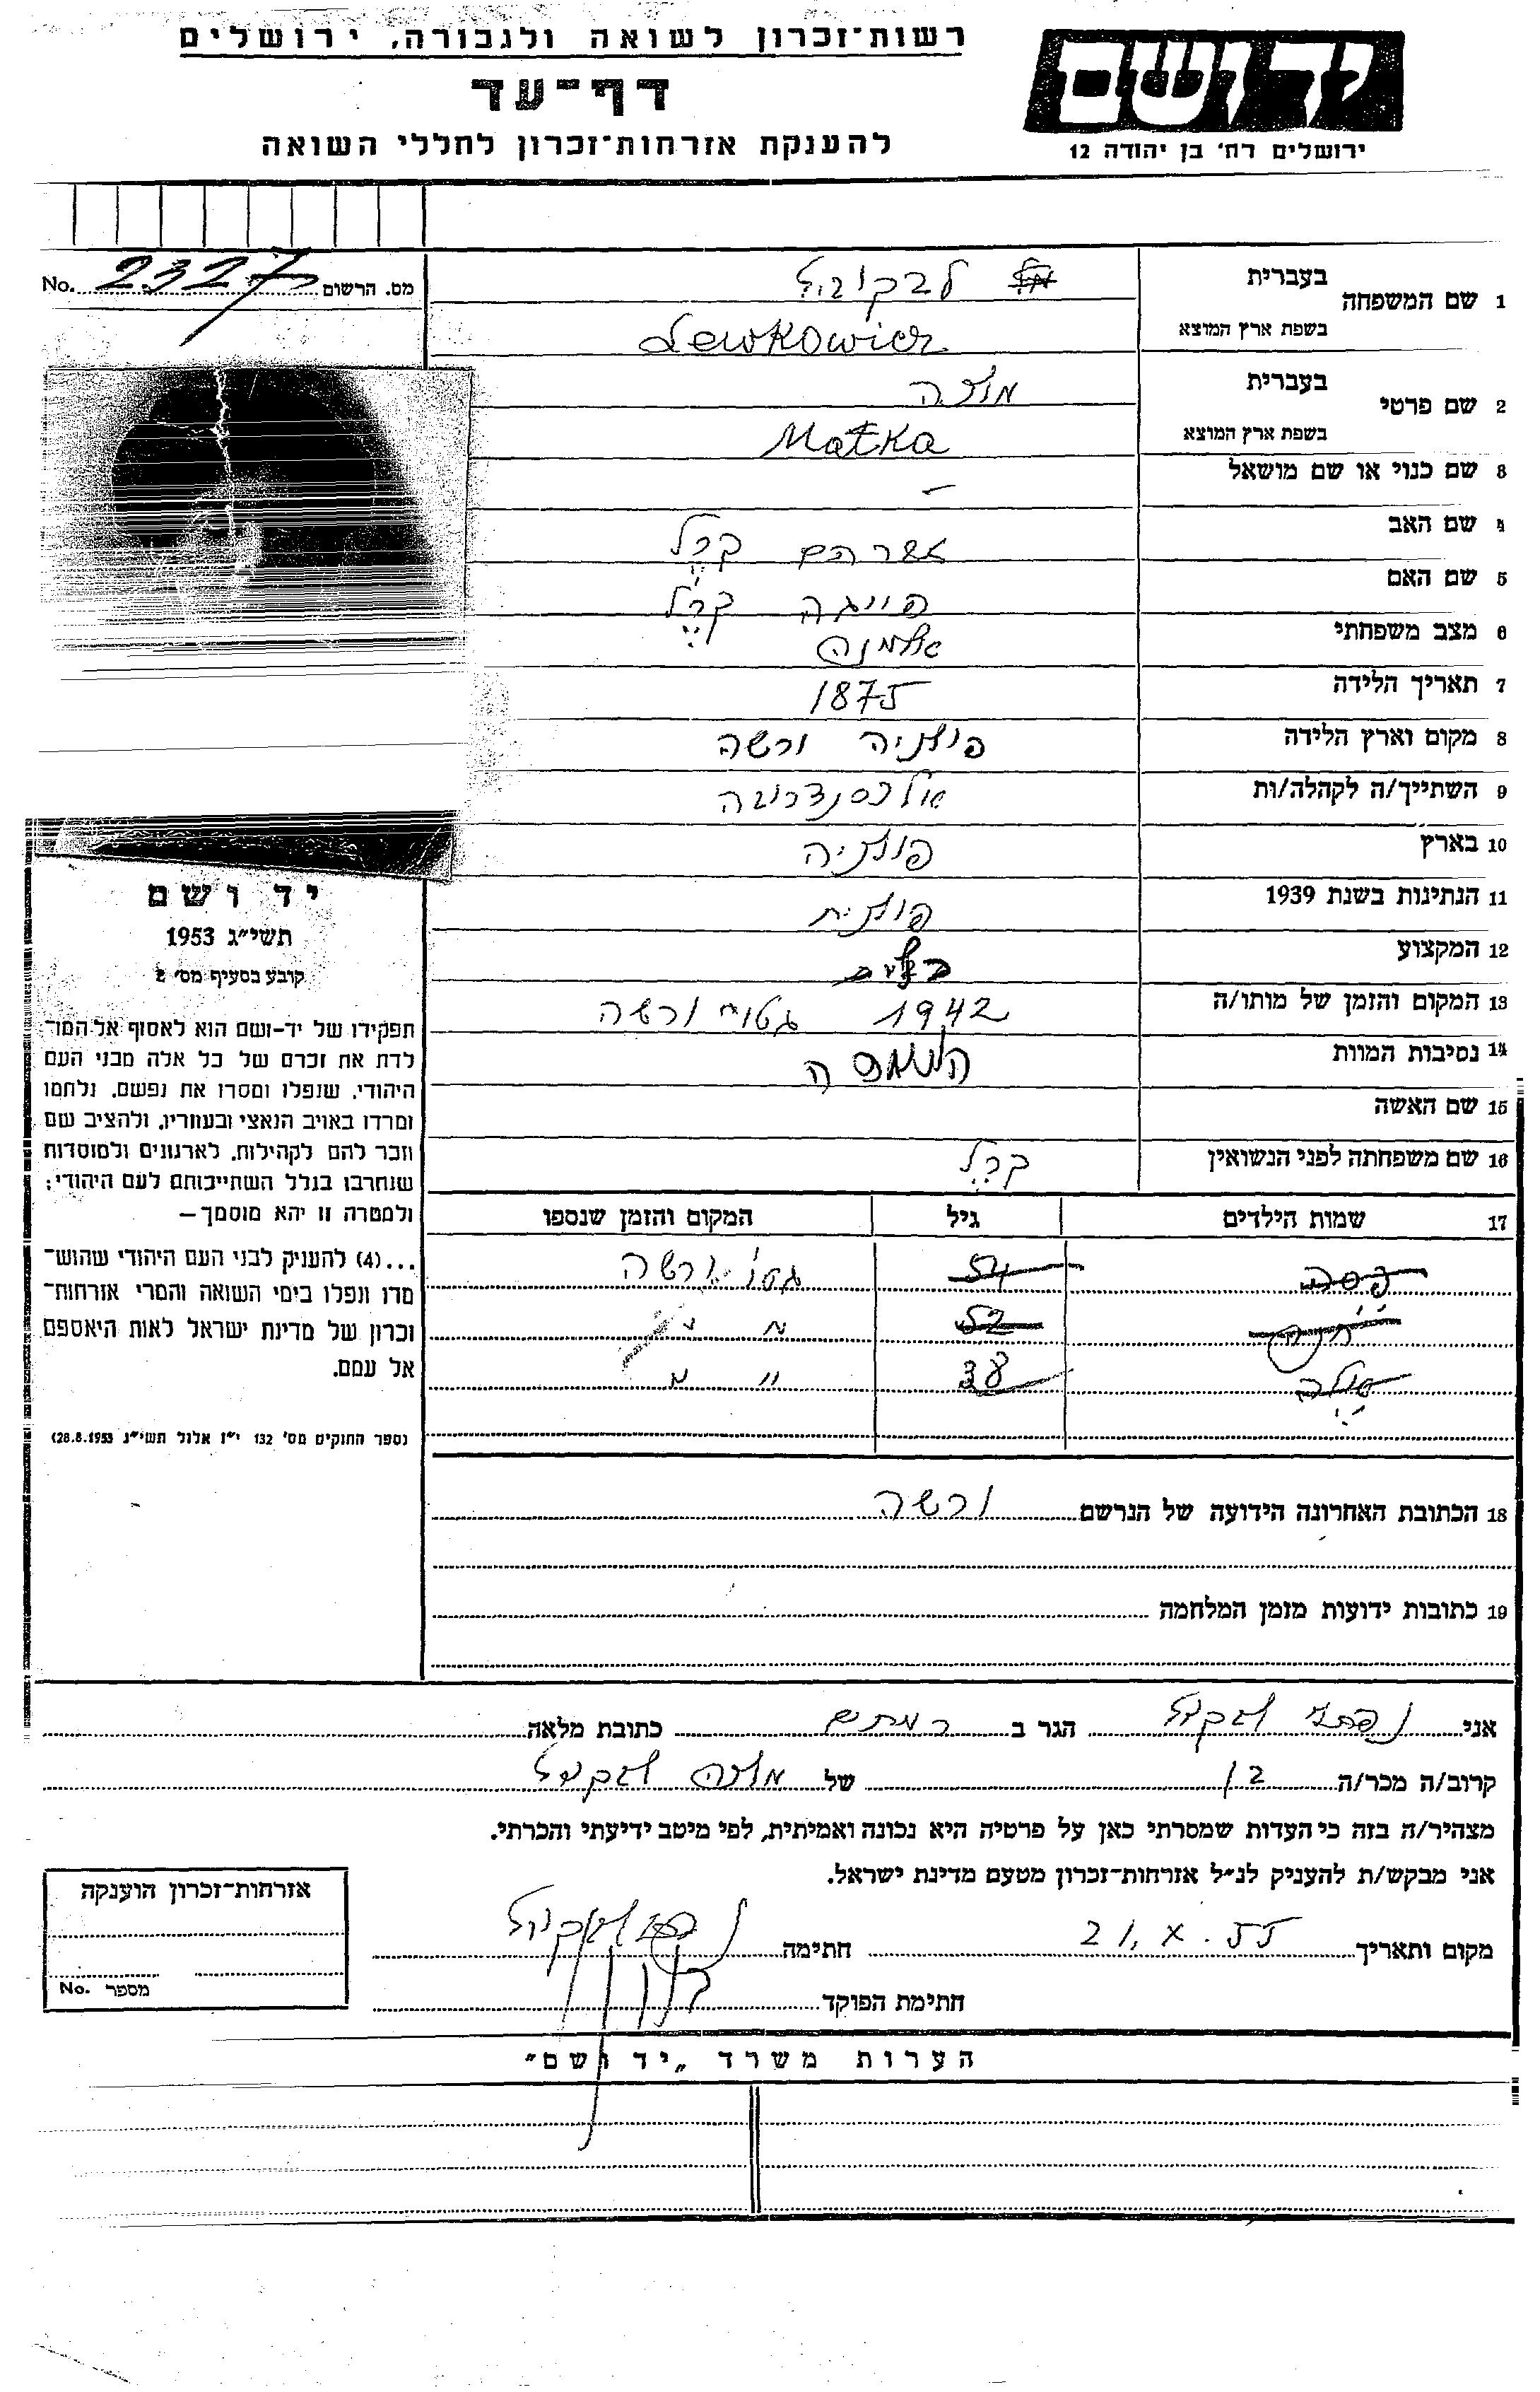 רשות־זכרון לשואה ולגבורה, ירושלים
דף־עד
להענקת אזרחות־זכרון לחללי השואה
יד ושם
ירושלים רח' בן יהודה 12
מס. הרשום 2327 No.
1 שם המשפחה
בעברית לבקוביץ
בשפת ארץ המוצא Lewkowicz
2 שם פרטי
בעברית מלכה
בשפת ארץ המוצא Małka
3 שם כנוי או שם מושאל -
4 שם האב אברהם קרל
5 שם האם פייגה קרל
6 מצב משפחתי אלמנה
7 תאריך הלידה 1875
8 מקום וארץ הלידה פולניה ורשה
9 השתייך/ה לקהלה/ות אלכסנדרובה
10 בארץ פולניה
11 הנתינות בשנת 1939 פולנית
12 המקצוע
13 המקום והזמן של מותו/ה 1942 גטו ורשה
14 נסיבות המוות
15 שם האשה
16 שם משפחתה לפני הנשואין קרל
17 שמות הילדים גיל המקום והזמן שנספו
54 גטו ורשה
52 " "
" "
18 הכתובת האחרונה הידועה של הנרשם ורשה
19 כתובות ידועות מזמן המלחמה
יד ושם
תשי"ג 1953
קובע בסעיף מס' 2
תפקידו של יד-ושם הוא לאסוף אל המו־
לדת את זכרם של כל אלה מבני העם
היהודי, שנפלו ומסרו את נפשם, נלחמו
ומרדו באויב הנאצי ובעוזריו, ולהציב שם
וזכר להם לקהילות, לארגונים ולמוסדות
שנחרבו בגלל השתייכותם לעם היהודי;
ולמטרה זו יהא מוסמך—
...(4) להעניק לבני העם היהודי שהוש־
מדו ונפלו בימי השואה והמרי אזרחות־
זכרון של מדינת ישראל לאות היאספם
אל עמם.
(ספר החוקים מס' 132 י"ז אלול תשי"ג 28.8.1953)
אני נפתלי לבקוביץ הגר ב רמתים כתובת מלאה
קרוב/ה מכר/ה בן של מלכה לבקוביץ
מצהיר/ה בזה כי העדות שמסרתי כאן על פרטיה היא נכונה ואמיתית, לפי מיטב ידיעתי והכרתי.
אני מבקש/ת להעניק לנ"ל אזרחות־זכרון מטעם מדינת ישראל.
מקום ותאריך 21.X.55 חתימה
חתימת הפוקד
אזרחות־זכרון הוענקה
מספר No.
הערות משרד „יד ושם"